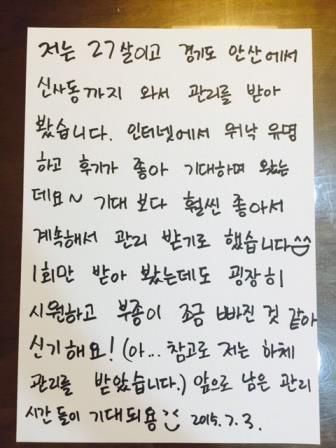 저는 27살이고 경기도 안산에서
신사동까지 와서 관리를 받아
봤습니다. 인터넷에서 워낙 유명
하고 후기가 좋아 기대하며 왔는
데요~ 기대 보다 훨씬 좋아서
계속해서 관리 받기로 했습니다^^
1회만 받아 봤는데도 굉장히
시원하고 부종이 조금 빠진 것 같아
신기해요! (아... 참고로 저는 하체
관리를 받았습니다.) 앞으로 남은 관리
시간들이 기대되용 :) 2015. 7. 3.